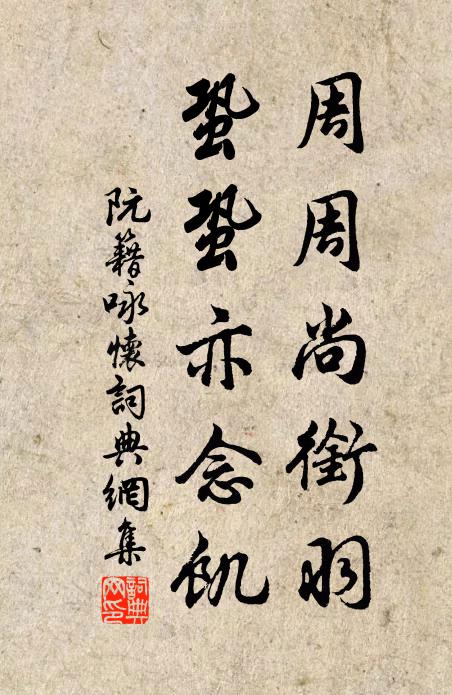 周周尚銜羽
蛩蛩亦念飢
阮籍詠懷詞典網集
詞典網印